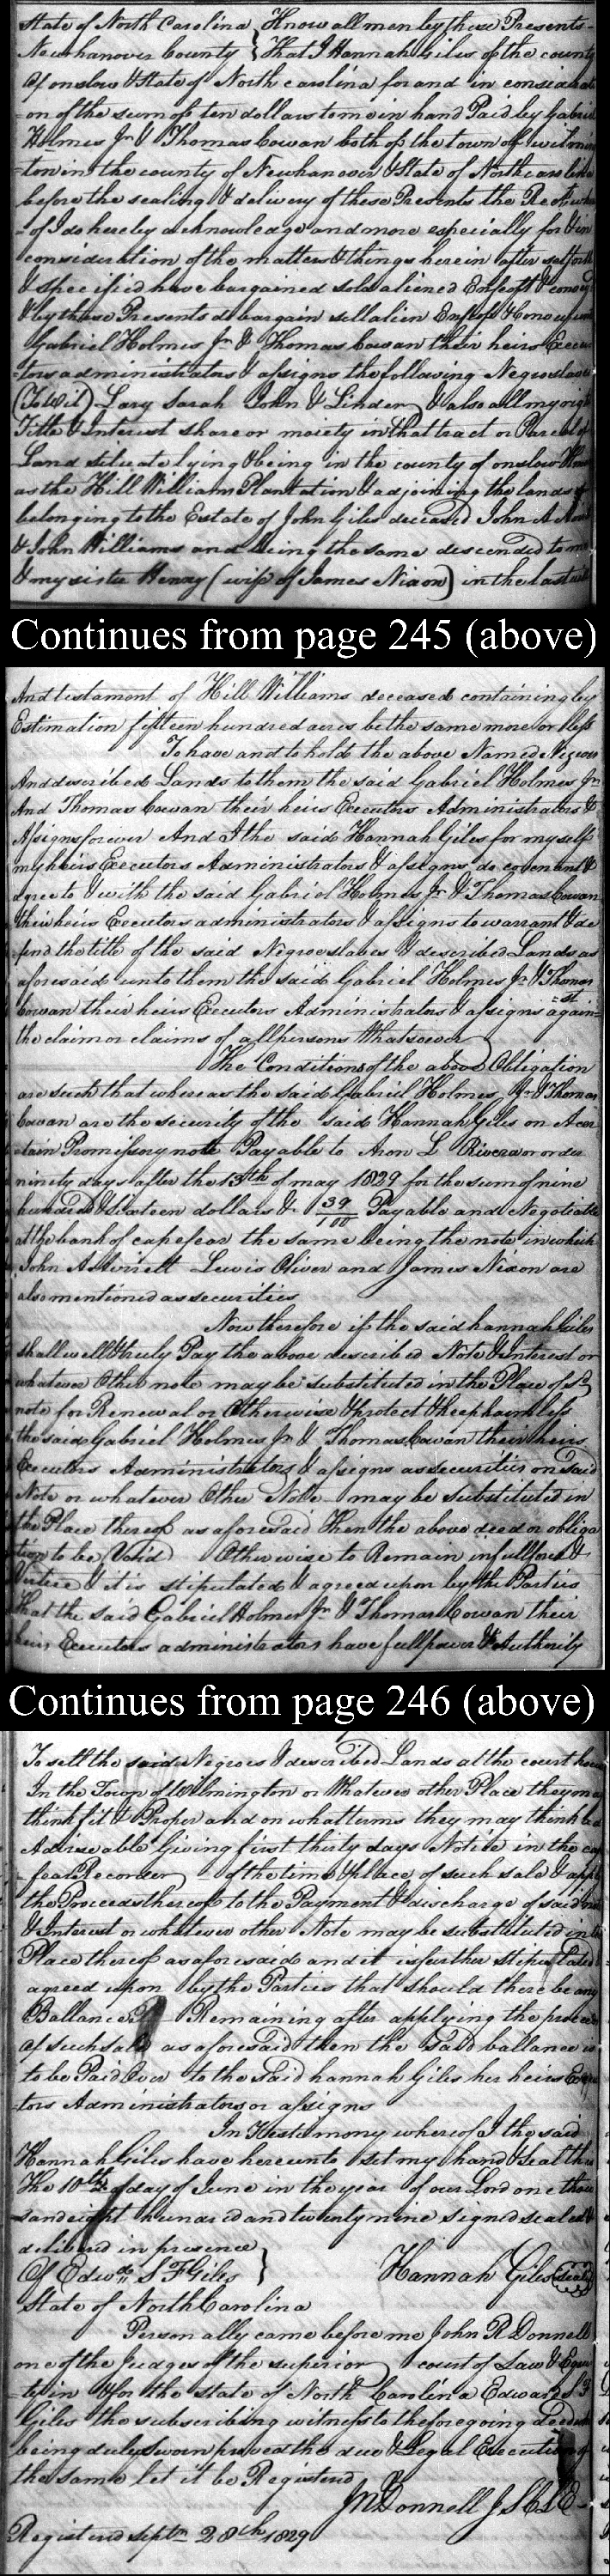 State of North Carolina } Know all men by these Presents
Newhanover County } That I Hannah Giles of the county
of onslow & State of North carolina for and in considerati
=on of the sum of ten dollars to me in hand Paid by Gabriel
Holmes Jr & Thomas Cowan both of the town of wilming
=ton in the county of Newhanover & State of North carolina
before the sealing & delivery of these Presents the Rect where
=of I do hereby acknowledge and more especially for & in
consideration of the matters & things herein after set forth
& specified have bargained sold aliened Enfeoft & conveyd
& by these Presents do bargain sell alien Enfeoff & convey unto
Gabriel Holmes Jr & Thomas Cowan their heirs Execu
=tors administrators & assigns the following Negro slaves
(To Wit) Lucy Sarah John & Linder & also all my right
Title & Interest share or moiety in that tract or Parcel of
Land situate lying & being in the county of onslow Known
as the Hill William Plantation & adjoining the lands of
belonging to the Estate of John Giles deceased John A
& John Williams and being the same descended to me
& my sister Henry (wife of James Nixon) in the last will
Continues from page 245 (above)
And testament of Hill Williams deceased containing by
Estimation fifteen hundred acres be the same more or less
To have and to hold the above Named Negroes
And described Lands to them the said Gabriel Holmes Jr
And Thomas Cowan their heirs Executors Administrators &
Assigns forever And I the said Hannah Giles for myself
my heirs Executors Administrators & assigns do covenant &
agree to & with the said Gabriel Holmes Jr & Thomas Cowan
their heirs Executors administrators & assigns to warrant & de
fend the title of the said Negroe slaves & described Lands as
aforesaid unto them the said Gabriel Holmes Jr & Thomas
Cowan their heirs Executors Administrators & assigns again=
=st
the claim or claims of all persons Whatsoever
The Conditions of the above Obligation
are such that whereas the said Gabriel Holmes Jr & Thomas
Cowan are the security of the said Hannah Giles on A cer
tain Promissory note Payable to Aron L Rivera or order
ninety days after the 13th of may 1829 for the sum of nine
hundred & sixteen dollars & 39/100 Payable and Negotiable
at the bank of cape fear the same being the note in which
John A Averett Lewis Oliver and James Nixon are
also mentioned as securities
Now therefore if the said hannah Giles
shall well & truly Pay the above described Note & Interest or
whatever Other note may be substituted in the Place of sd
note for Renewal or Otherwise & protect & keep harmless
the said Gabriel Holmes Jr & Thomas Cowan their heirs
Executors Administrators & assigns as securities on said
Note or whatever Other Note may be substituted in
the Place thereof as aforesaid then the above deed or obliga
tion to be Void Otherwise to Remain in full force &
Virtue & it is stipulated & agreed upon by the Parties
that the said Gabriel Holmes Jr & Thomas Cowan their
heirs Executors administrators have full power & Authority
Continues from page 246 (above)
To sell the said Negroes & described Lands at the court house
In the Town of Wilmington or Whatever other Place they may
think fit & Proper and on what terms they may think
Adviseable Giving first thirty days Notice in the cape
fear Recorder of the time & place of such sale & apply
the Proceeds thereof to the Payment & discharge of said note
& Interest or whatever other Note may be substituted in the
Place thereof as aforesaid and it is further stipulated
agreed upon by the Parties that should there be any
Ballance Remaining after applying the proceeds
of such sale as aforesaid then the said ballance is
to be Paid Over to the said hannah Giles her heirs Execu
=tors Administrators or assigns
In Testimony whereof I the said
Hannah Giles have hereunto set my hand & seal this
the 10th of day of June in the year of our Lord one thou
=sand eight hundred and twenty nine signed sealed &
delivered in presence
Of Edwd S F Giles } Hannah Giles (seal)
State of North Carolina
Personally came before me John R Donnell
one of the Judges of the superior court of Law & Equi
=ty in & for the state of North Carolina Edward S F
Giles the subscribing witness to the foregoing deed &
being duly sworn proved the due & Legal Execution of
the same let it be Registered
Jn Donnell J S C L E
Registered Septr 28th 1829